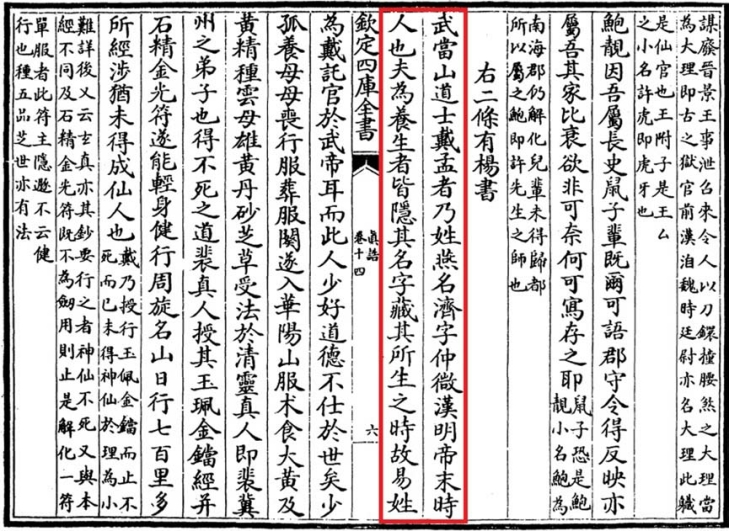 謀廢晉景王事泄召來令人以刀鐶撞腰煞之大理當
為大理即古之獄官前漢洎魏時廷尉亦名大理此職
是仙官也王附子是王厶
之小名許虎即虎牙也
鮑靚因吾屬長史鼠子輩既爾可語郡守令得反映亦
屬吾其家比衰欲非可奈何可寫存之耶鼠子恐是鮑
靚小名鮑為
南海郡仍解化兒輩未得歸都
所以屬之鮑即許先生之師也
右二條有楊書
武當山道士戴孟者乃姓燕名濟字仲微漢明帝末時
人也夫為養生者皆隱其名字藏其所生之時故易姓
欽定四庫全書
真誥
卷十四
六
為戴託官於武帝耳而此人少好道德不仕於世矣少
孤養母母喪行服葬服闋遂入華陽山服术食大黃及
黃精種雲母雄黃丹砂芝草受法於清靈真人即裴冀
州之弟子也得不死之道裴真人授其玉珮金鐺經并
石精金光符遂能輕身健行周旋名山日行七百里多
所經涉猶未得成仙人也戴乃授行玉佩金鐺而止不
死而已未得神仙於理為小
難詳後又云玄真亦其鈔要行之者神仙不死又與本
經不同及石精金光符既不為劒用則止是解化一符
單服者此符主隱遯不云健
行也種五品芝世亦有法